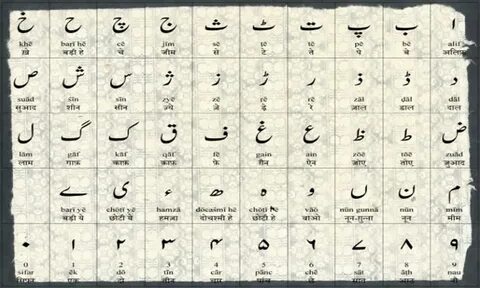 ا ب پ ت ٹ ث ج چ ح خ
khē baṛī hē cē jīm sē ṭē tē pē bē alif
ख़े बड़ी हे चे जीम से टे ते पे बे अलिफ़
د ڈ ذ ر ڑ ز ژ س ش ص
suād śīn sīn zyē zē ṛē rē zāl ḍāl dāl
सुआद शीन सीन ज़्ये ज़े ड़े रे ज़ाल डाल दाल
ض ط ظ ع غ ف ق ک گ ل
lām gāf kāf qāf fē gain ain zōē tōē zuād
लाम गाफ़ काफ़ क़ाफ़ फ़े ग़ैन ऐन ज़ोए तोए ज़ुआद
م ن ں و ہ ھ ء ی ے
baṛī yē chōṭī yē hamzā dōcaśmī hē chōṭī hē vāō nūn gunnā nūn mīm
बड़ी ये छोटी ये हमज़ा दोचश्मी हे छोटी हे वाओ नून-गुन्ना नून मीम
۰ ۱ ۲ ۳ ۴ ۵ ۶ ۷ ۸ ۹
0 1 2 3 4 5 6 7 8 9
sifar ēk dō tīn cār pānc chē sāt āṭh nau
सिफ़र एक दो तीन चार पांच छे सात आठ नौ